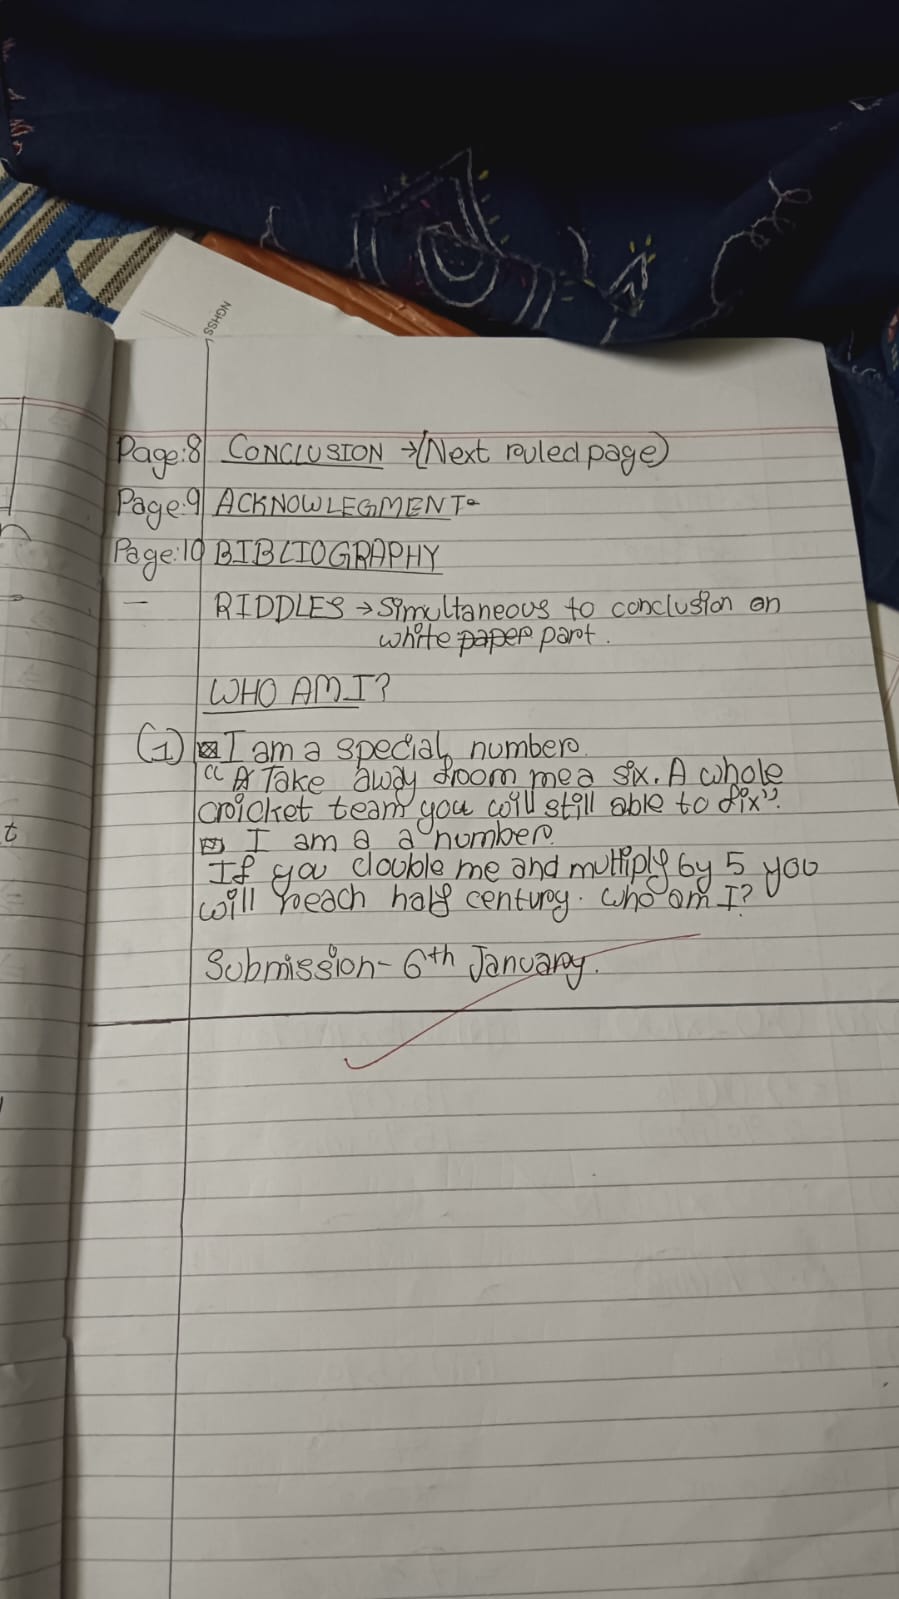 NGHSS
Page:8 CONCLUSION →(Next ruled page)
Page:9 ACKNOWLEGMENT-
Page:10 BIBLIOGRAPHY
— RIDDLES → Simultaneous to conclusion on
white paper part.
WHO AM I?
(1) I am a special number.
“ Take away from me a six. A whole
cricket team you will still able to fix”.
I am a a number.
If you double me and multiply by 5 you
will reach half century. Who am I?
t
Submission- 6th January.